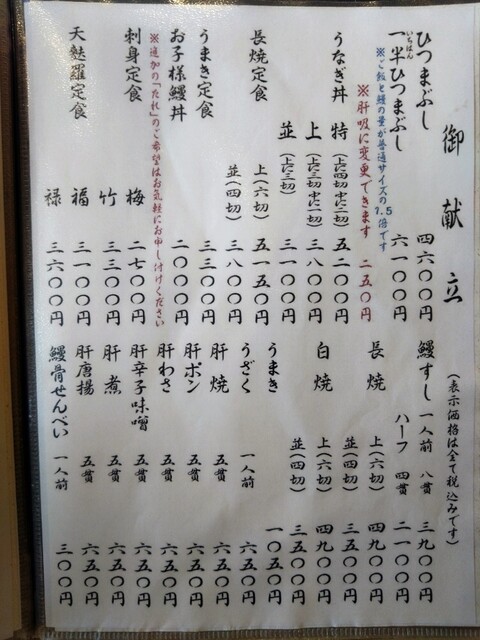 御献立
（表示価格は全て税込みです）
ひつまぶし 四六〇〇円
一半ひつまぶし 六一〇〇円
いちはん
※ご飯と鰻の量が普通サイズの1.5倍です
※肝吸に変更できます 二五〇円
うなぎ丼 特（上に四切中に二切） 五二〇〇円
上（上に三切中に一切） 三八〇〇円
並（上に三切） 三一〇〇円
長焼定食 上（六切） 五一五〇円
並（四切） 三八〇〇円
うまき定食 三三〇〇円
お子様鰻丼 二〇〇〇円
※追加の「たれ」のご希望はお気軽にお申し付けください
刺身定食 梅 二七〇〇円
竹 三三〇〇円
天麩羅定食 福 三一〇〇円
禄 三六〇〇円
鰻すし 一人前 八貫 三九〇〇円
ハーフ 四貫 二一〇〇円
長焼 上（六切） 四九〇〇円
並（四切） 三五〇〇円
白焼 上（六切） 四九〇〇円
並（四切） 三五〇〇円
うまき 一〇五〇円
うざく 一人前 六五〇円
肝焼 五貫 六五〇円
肝ポン 五貫 六五〇円
肝わさ 五貫 六五〇円
肝辛子味噌 五貫 六五〇円
肝煮 五貫 六五〇円
肝唐揚 五貫 六五〇円
鰻骨せんべい 一人前 三〇〇円